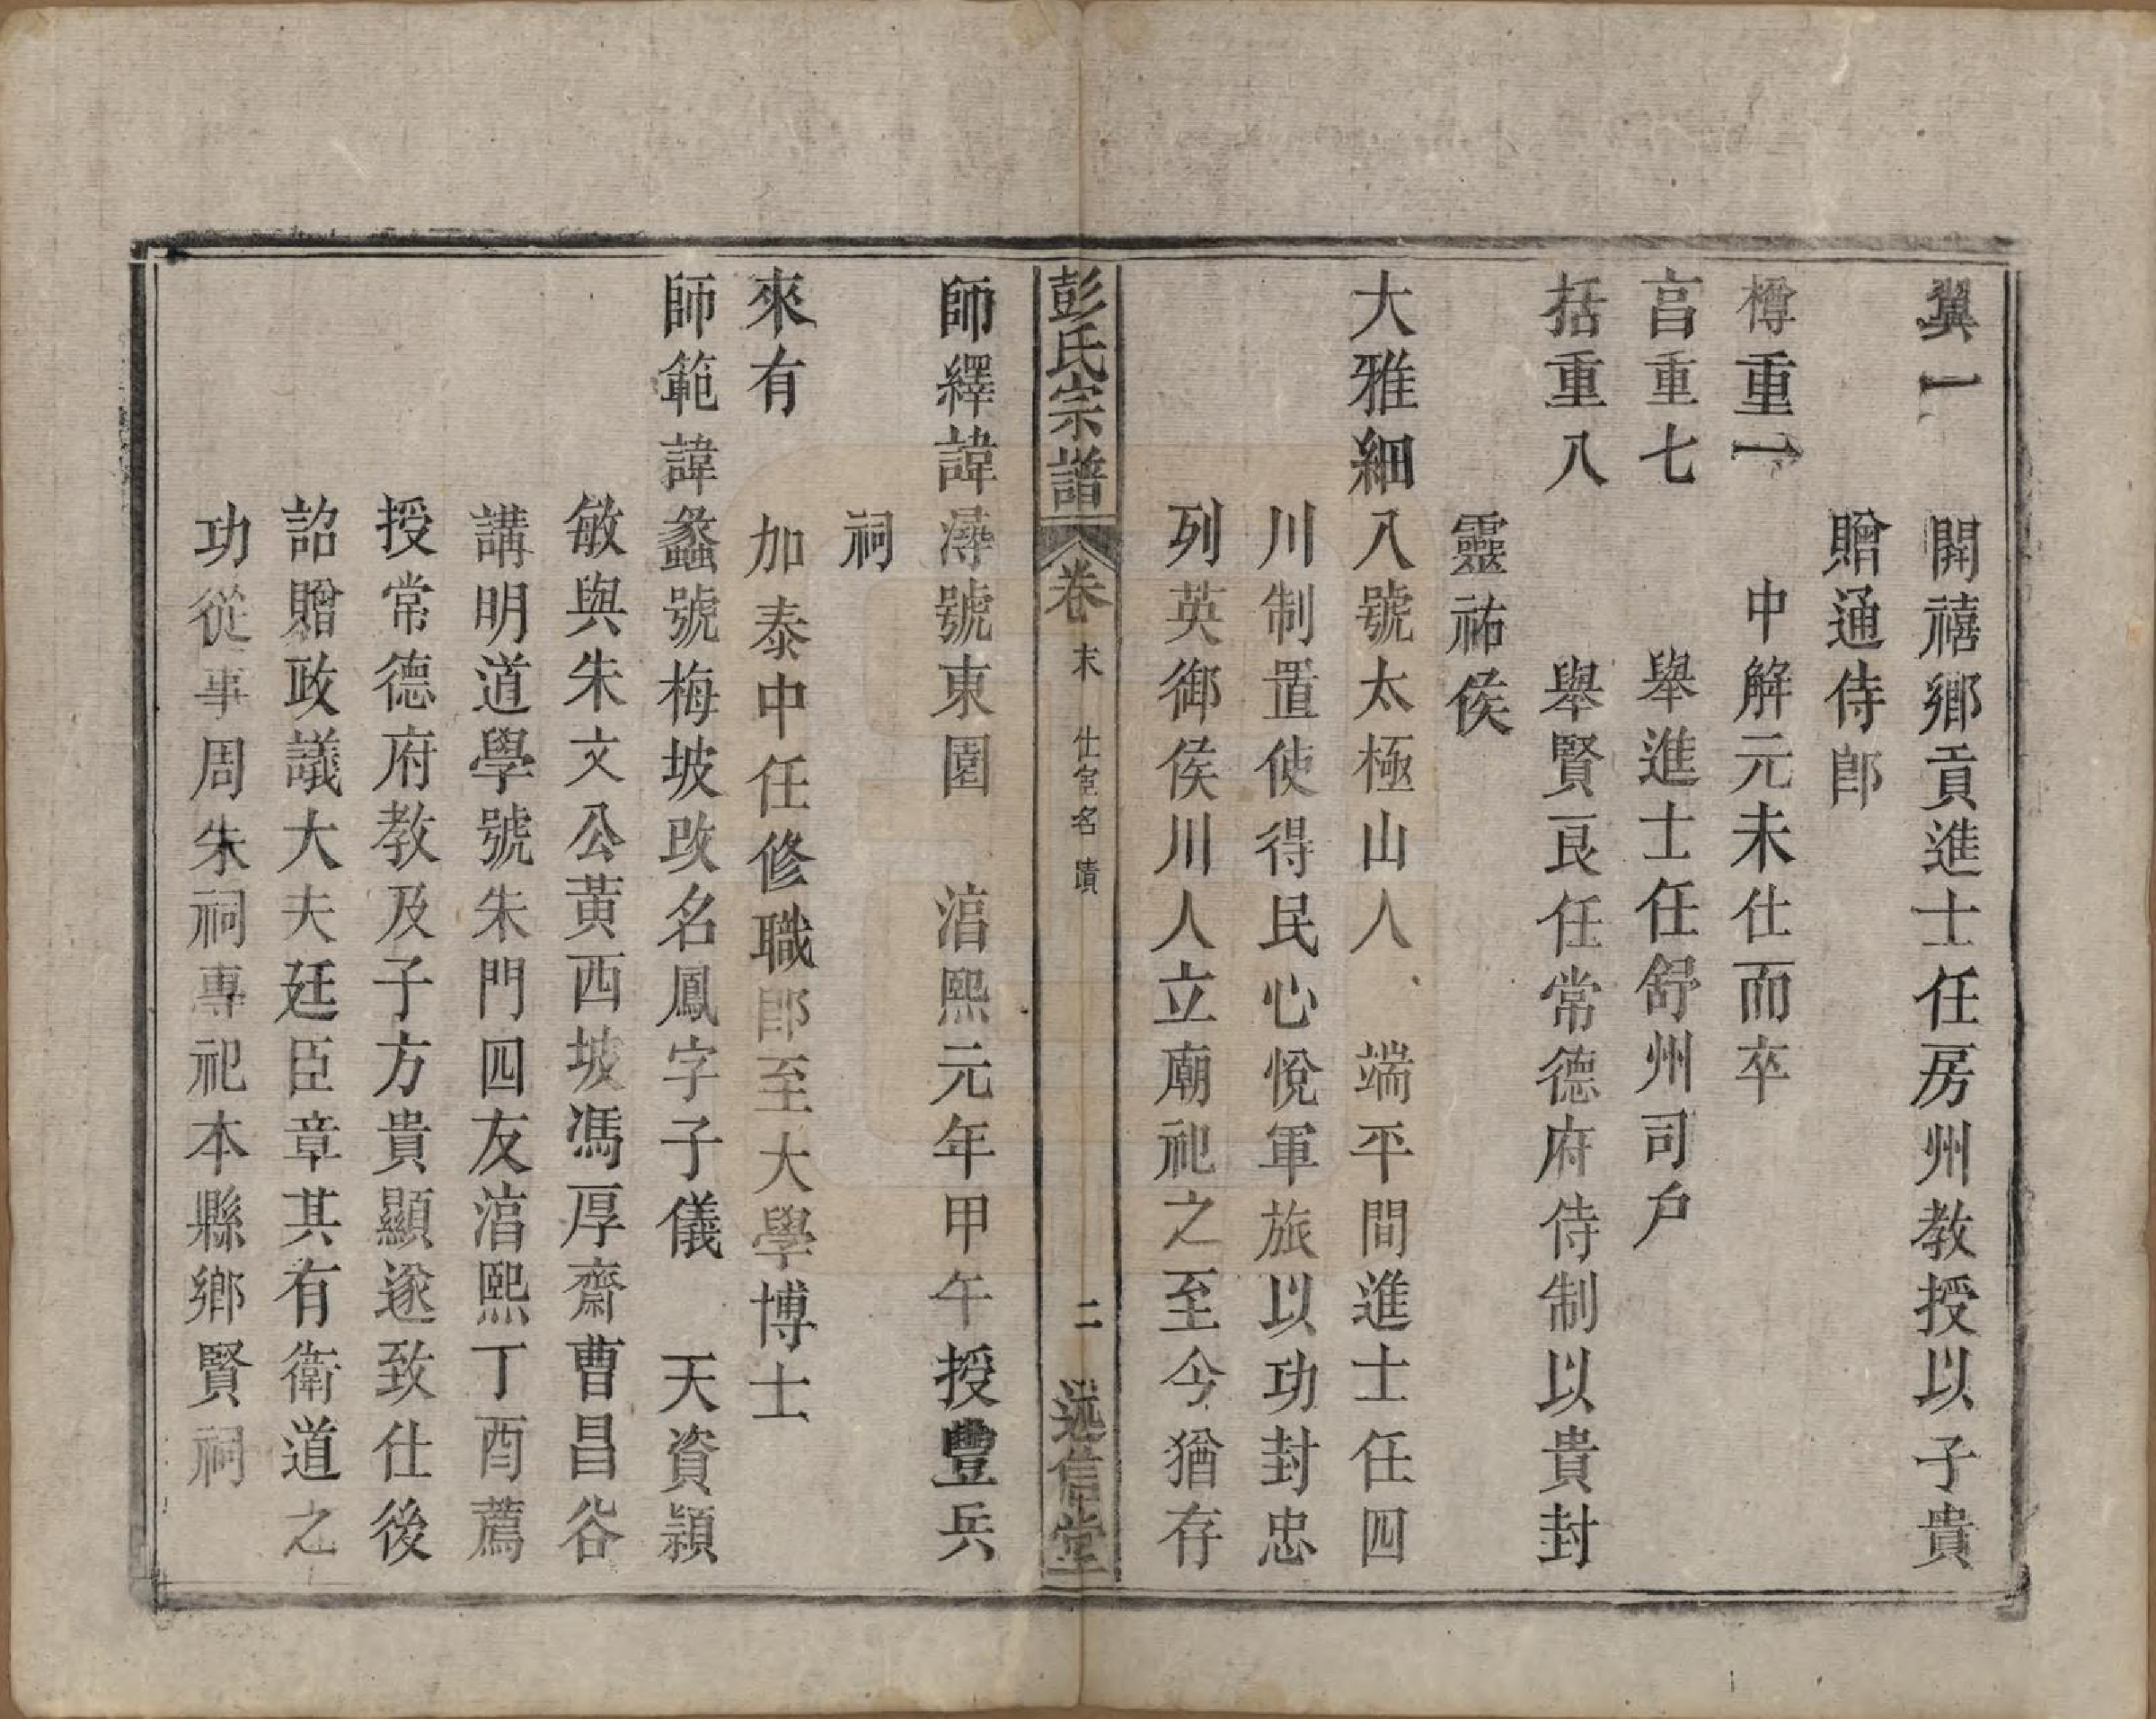 翼一　開禧鄉貢進士任房州教授以子貴
贈通侍郎
樽重一　中解元未仕而卒
言重七　舉進士任舒州司戶
括重八　舉賢良任常德府侍制以貴封
靈祐侯
大雅細八號太極山人　端平間進士任四
川制置使得民心悅軍旅以功封忠
列英御侯川人立廟祀之至今猶存
彭氏宗譜　卷末　仕宦名蹟　二　述信堂
師繹諱潯號東園　淳熙元年甲午授豐兵
祠
來有　加泰中任修職郎至大學博士
師範諱蠡號梅坡改名鳳字子儀　天資穎
敏與朱文公黃西坡馮厚齋曹昌谷
講明道學號朱門四友淳熙丁酉薦
授常德府教及子方貴顯遂致仕後
詔贈政議大夫廷臣章其有衛道之
功從事周朱祠專祀本縣鄉賢祠